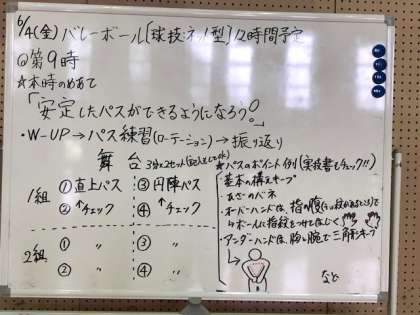 6/4(金) バレーボール(球技:ネット型) 12時間予定
◎第9時
☆本時のめあて
「安定したパスができるようになろう!」
・W-UP→パス練習(ローテーション)→振り返り
舞台 3分×2セット
1組 ①直上パス ③円陣パス
②↑チェック ④↑チェック
2組 ① 〃 ③ 〃
② 〃 ④ 〃
☆パスのポイント例(実技書もチェック!!)
・基本の構えキープ
・ひざのバネ
・オーバーハンドは、指の腹
↳ボールに指紋をつけてはじく
・アンダーハンドは、胸と腕で三角形キープ
など